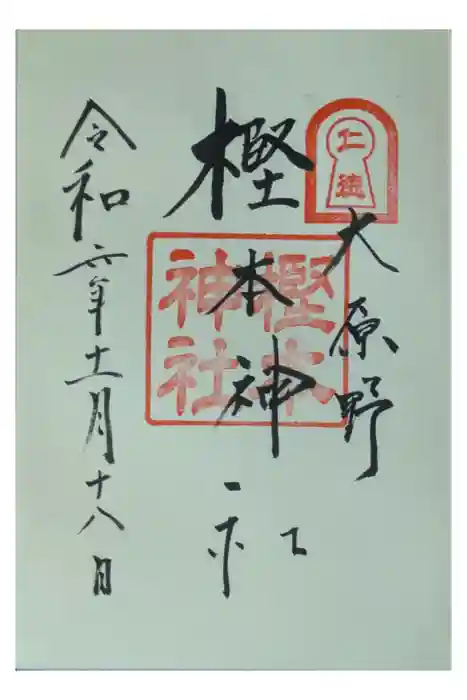 仁徳
大原野
樫本神社
樫本
神社
令和六年十一月十八日